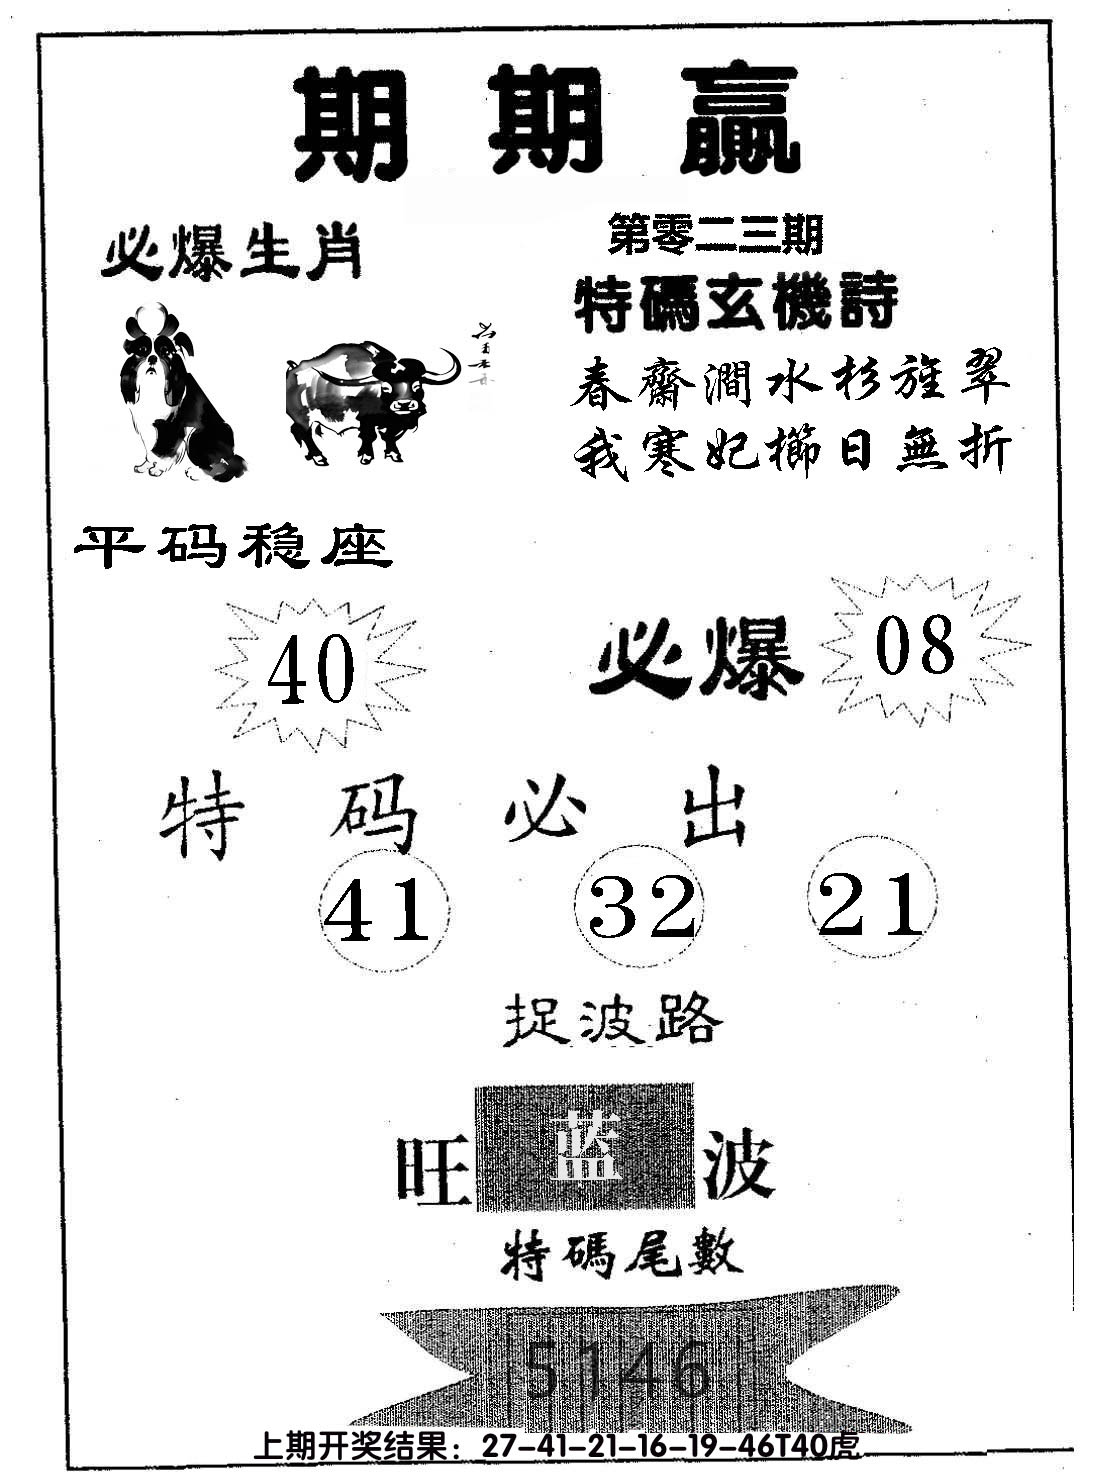 期期贏
必爆生肖
第零二三期
特碼玄機詩
春齋澗水杉旌翠
我寒妃櫛日無折
平码稳座
40
必爆
08
特码必出
41 32 21
捉波路
旺蓝波
特碼尾數
5146
上期开奖结果：27-41-21-16-19-46T40虎